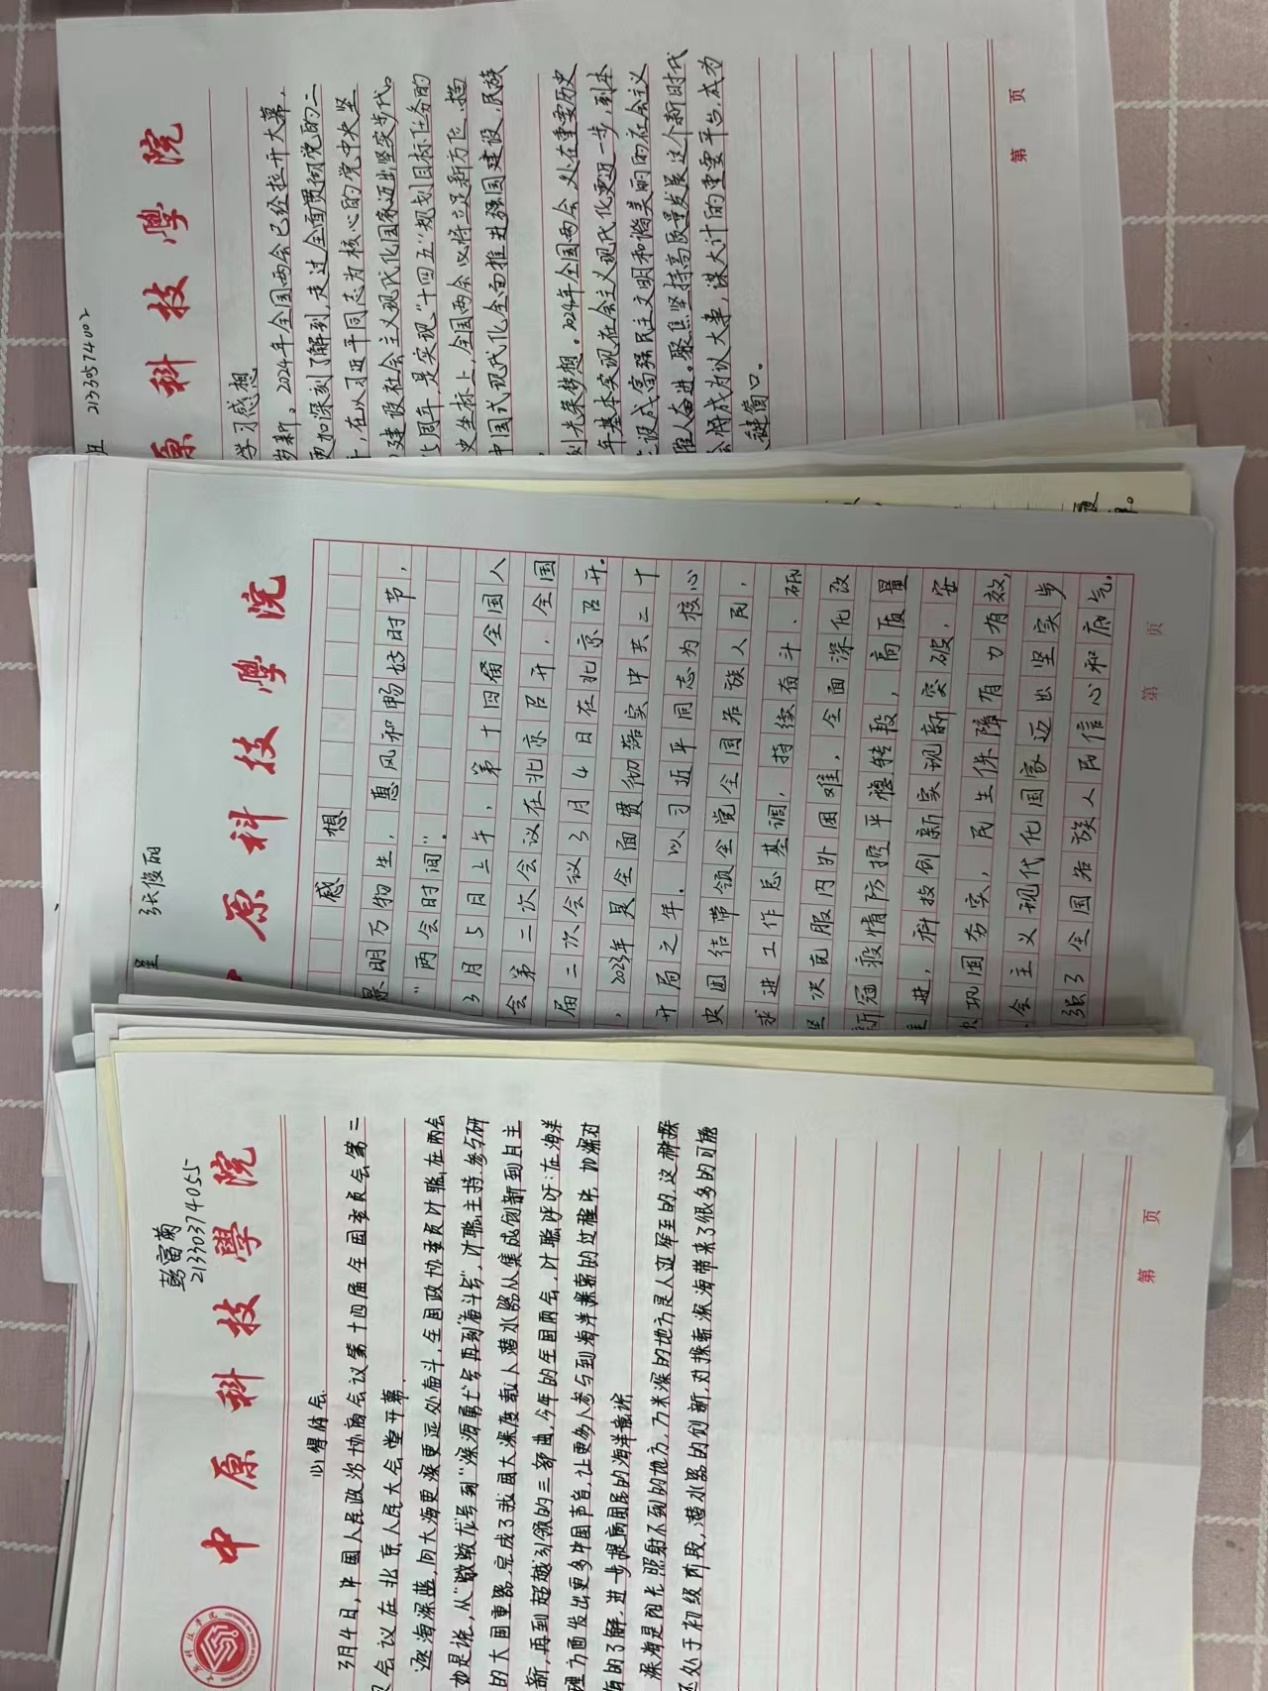 21330574002
原科技學院
学习感想
岁新。2024年全国两会已经拉开大幕,
更加深刻了解到,走过全面贯彻党的二
,在以习近平同志为核心的党中央坚
建设社会主义现代化国家迈出坚实步代。
5周年,是实现"十四五"规划目标任务的
史坐标上,全国两会必将立足新方位、描
中国式现代化全面推进强国建设、民族
刻光荣梦想。2024年全国两会处在重要历史
年基本实现社会主义现代化更近一步,到本
设成富强民主文明和谐美丽的社会主义
催人奋进。聚焦坚持高质量发展这个新时代
会将成为议大事,谋大计的重要平台,成为
键窗口。
第 页
张俊丽
原科技學院
感想
景明万物生,惠风和畅好时节,
"两会时间"。
3月5日上午,第十四届全国人
会第二次会议在北京召开,全国
届二次会议3月4日在北京召开。
,2023年是全面贯彻落实中共二十
开局之年。以习近平同志为核心
央团结带领全党全国各族人民,
求进工作总基调,持续奋斗、砥
次克服内外困难,全面深化改
新冠疫情防控平稳转段,高质量
进,科技创新家现新突破,安
巩固夯实,民生保障有力有效,
会主义现代化国家迈出坚实步
强了全国各族人民信心和底气.
第 页
彭富菊
21330374055
中原科技學院
心得体会
3月4日,中国人民政治协商会议第十四届全国委员会第二
会议在北京人民大会堂开幕.
逐海深蓝,向大海更深更远处奋斗,全国政协委员叶聪在两会
如是说,从"蛟蛟龙号到"深海勇士"号再到"奋斗号",叶聪主持、参与研
的大国重器,完成了我国大深度载人潜水器从集成创新到自主
新,再到超越引领的三部曲,今年的全国两会,叶聪呼吁:在海洋
理方面发出更多中国声音,让更多人参与到海洋探索的过程中,加深对
的了解,进一步提高国民的海洋意识
深海是阳光照射不到的地方,万米深的地方是人迹罕至的,这种探
还处于初级阶段,潜水器的创新,对探索深海带来了很多的可能
第 页